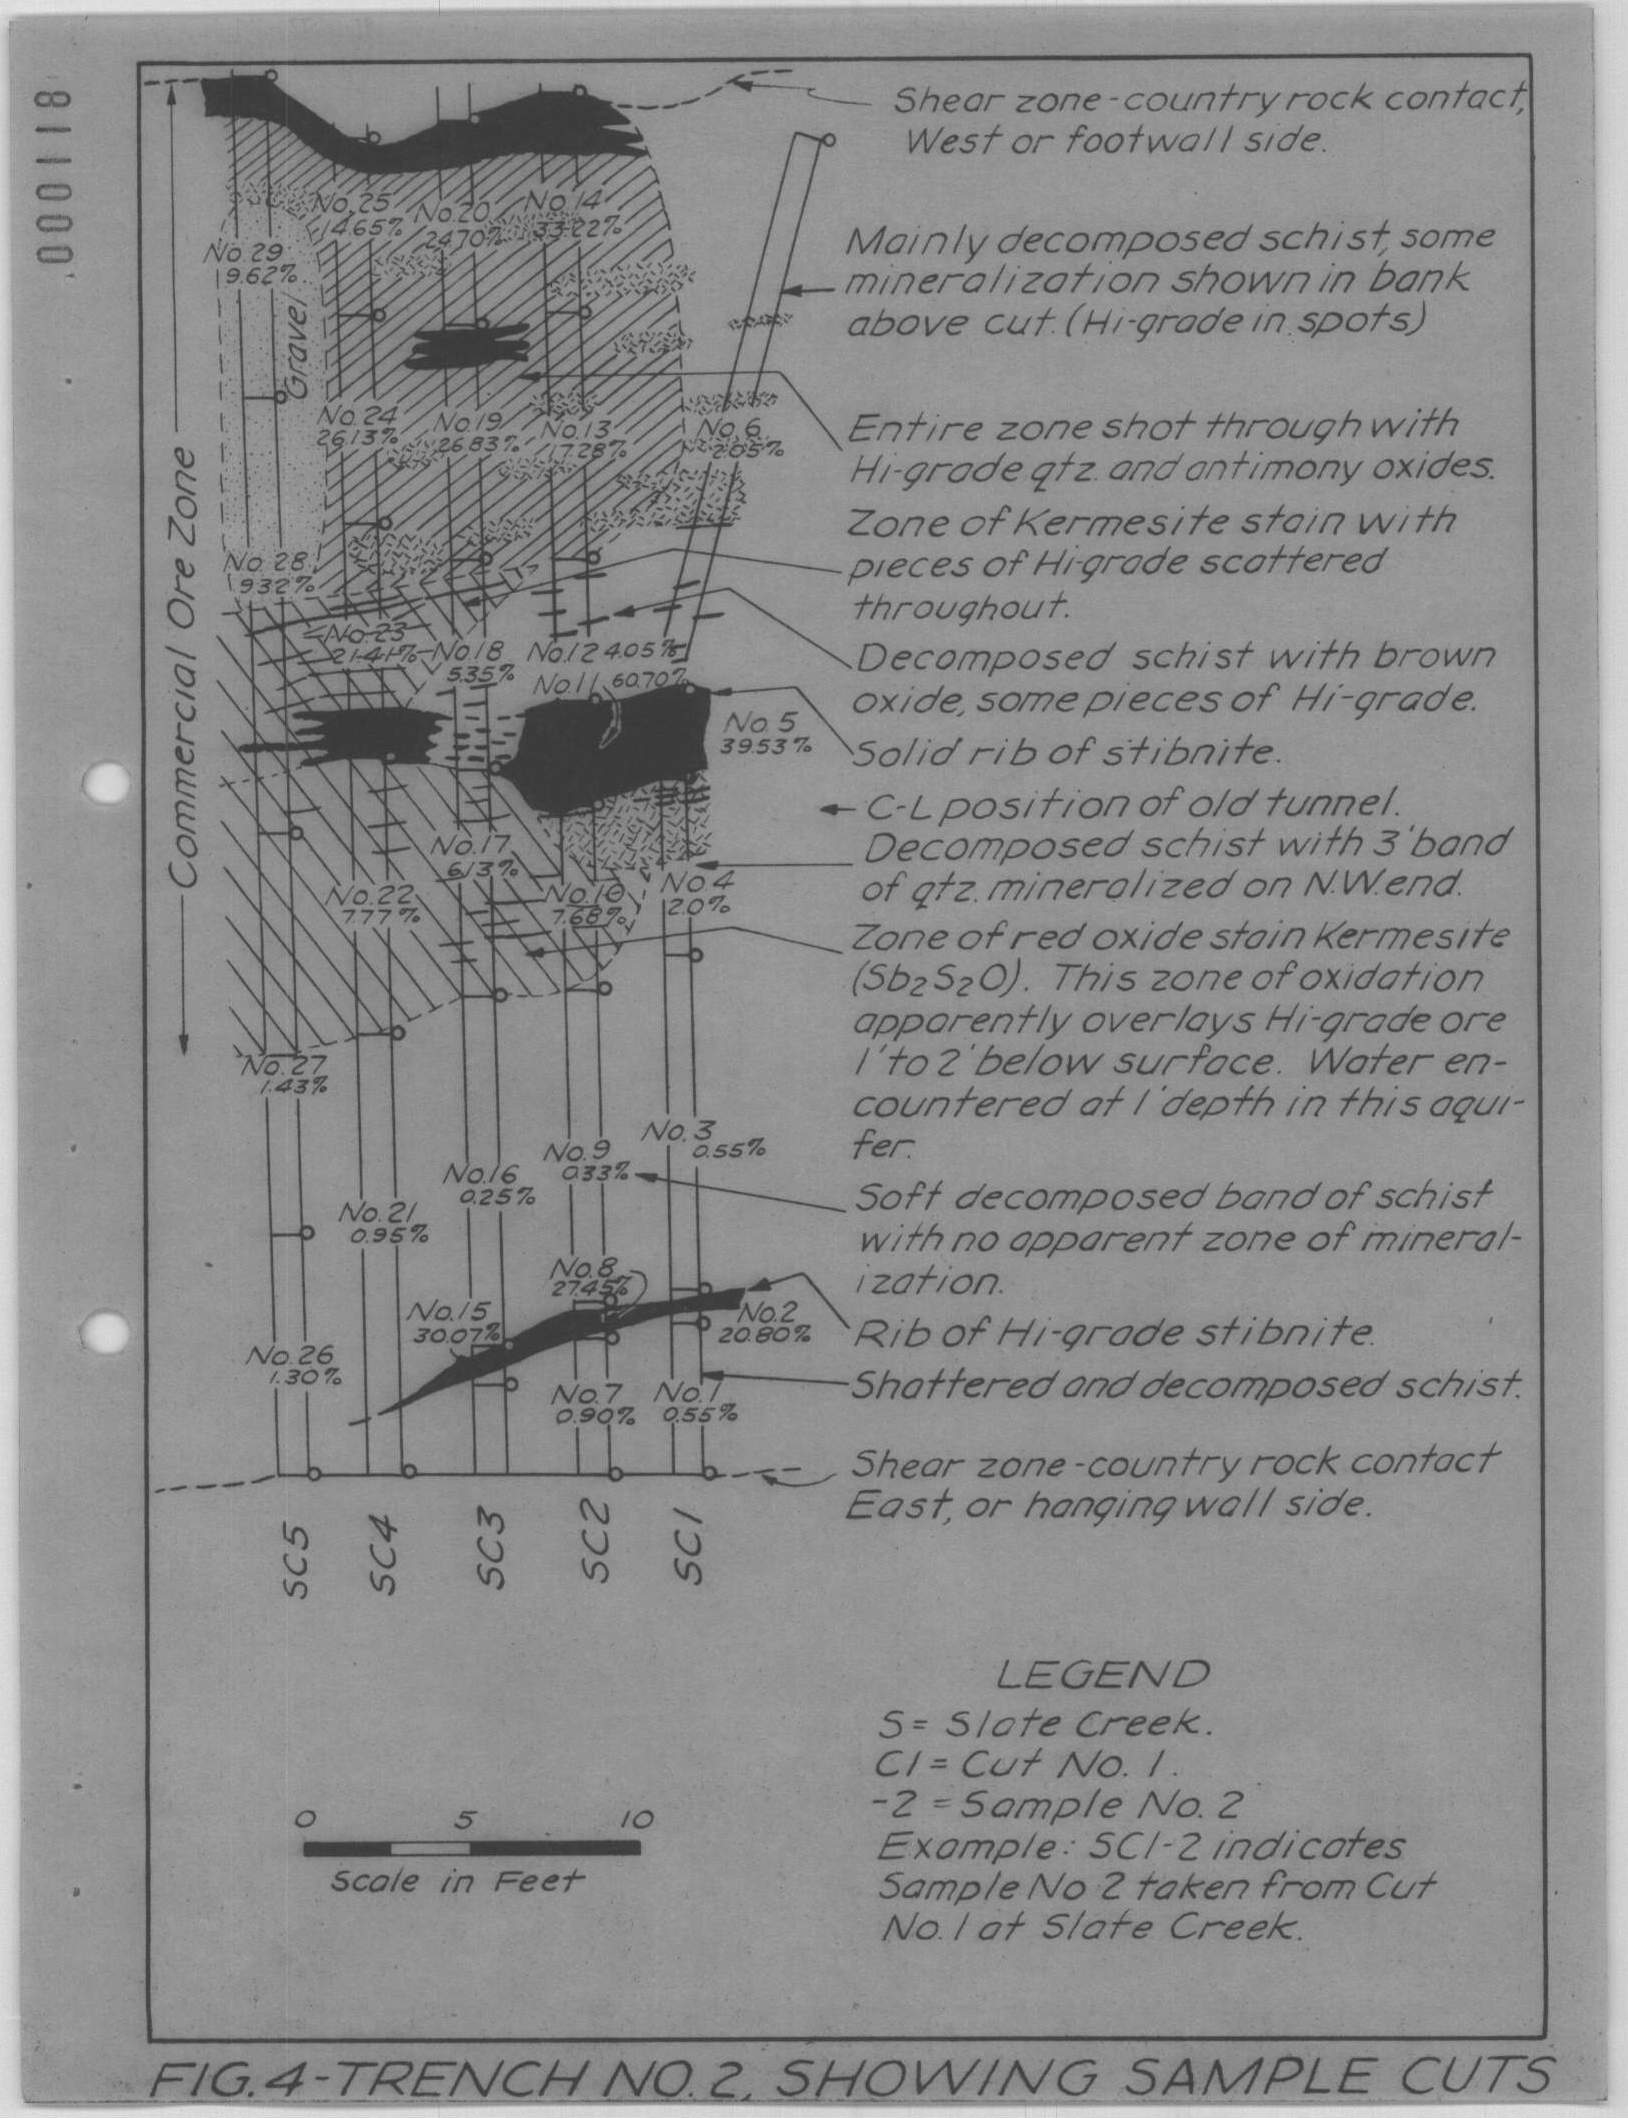 000118
Shear zone-country rock contact,
West or footwall side.
Mainly decomposed schist, some
mineralization shown in bank
above cut. (Hi-grade in spots)
Entire zone shot through with
Hi-grade qtz. and antimony oxides.
Zone of Kermesite stain with
pieces of Hi-grade scattered
throughout.
Decomposed schist with brown
oxide, some pieces of Hi-grade.
Solid rib of stibnite.
C-L position of old tunnel.
Decomposed schist with 3' band
of qtz. mineralized on N.W. end.
Zone of red oxide stain Kermesite
(Sb2S2O). This zone of oxidation
apparently overlays Hi-grade ore
1' to 2' below surface. Water en-
countered at 1' depth in this aqui-
fer.
Soft decomposed band of schist
with no apparent zone of mineral-
ization.
Rib of Hi-grade stibnite.
Shattered and decomposed schist.
Shear zone-country rock contact
East, or hanging wall side.
Commercial Ore Zone
Gravel
No. 25
14.65%
No. 20
24.70%
No. 14
33.22%
No. 29
9.62%
No. 24
26.13%
No. 19
26.83%
No. 13
17.28%
No. 6
2.05%
No. 28
9.32%
No. 23
21.41%
No. 18
5.35%
No. 12 4.05%
No. 11 60.70%
No. 5
39.53%
No. 17
6.13%
No. 22
7.77%
No. 10
7.68%
No. 4
2.0%
No. 27
1.43%
No. 3
0.55%
No. 9
0.33%
No. 16
0.25%
No. 21
0.95%
No. 8
27.45%
No. 15
30.07%
No. 2
20.80%
No. 26
1.30%
No. 7
0.90%
No. 1
0.55%
SC5
SC4
SC3
SC2
SC1
LEGEND
S = Slate Creek.
C1 = Cut No. 1.
-2 = Sample No. 2
Example: SC1-2 indicates
Sample No 2 taken from Cut
No. 1 at Slate Creek.
0 5 10
Scale in Feet
FIG. 4-TRENCH NO. 2, SHOWING SAMPLE CUTS